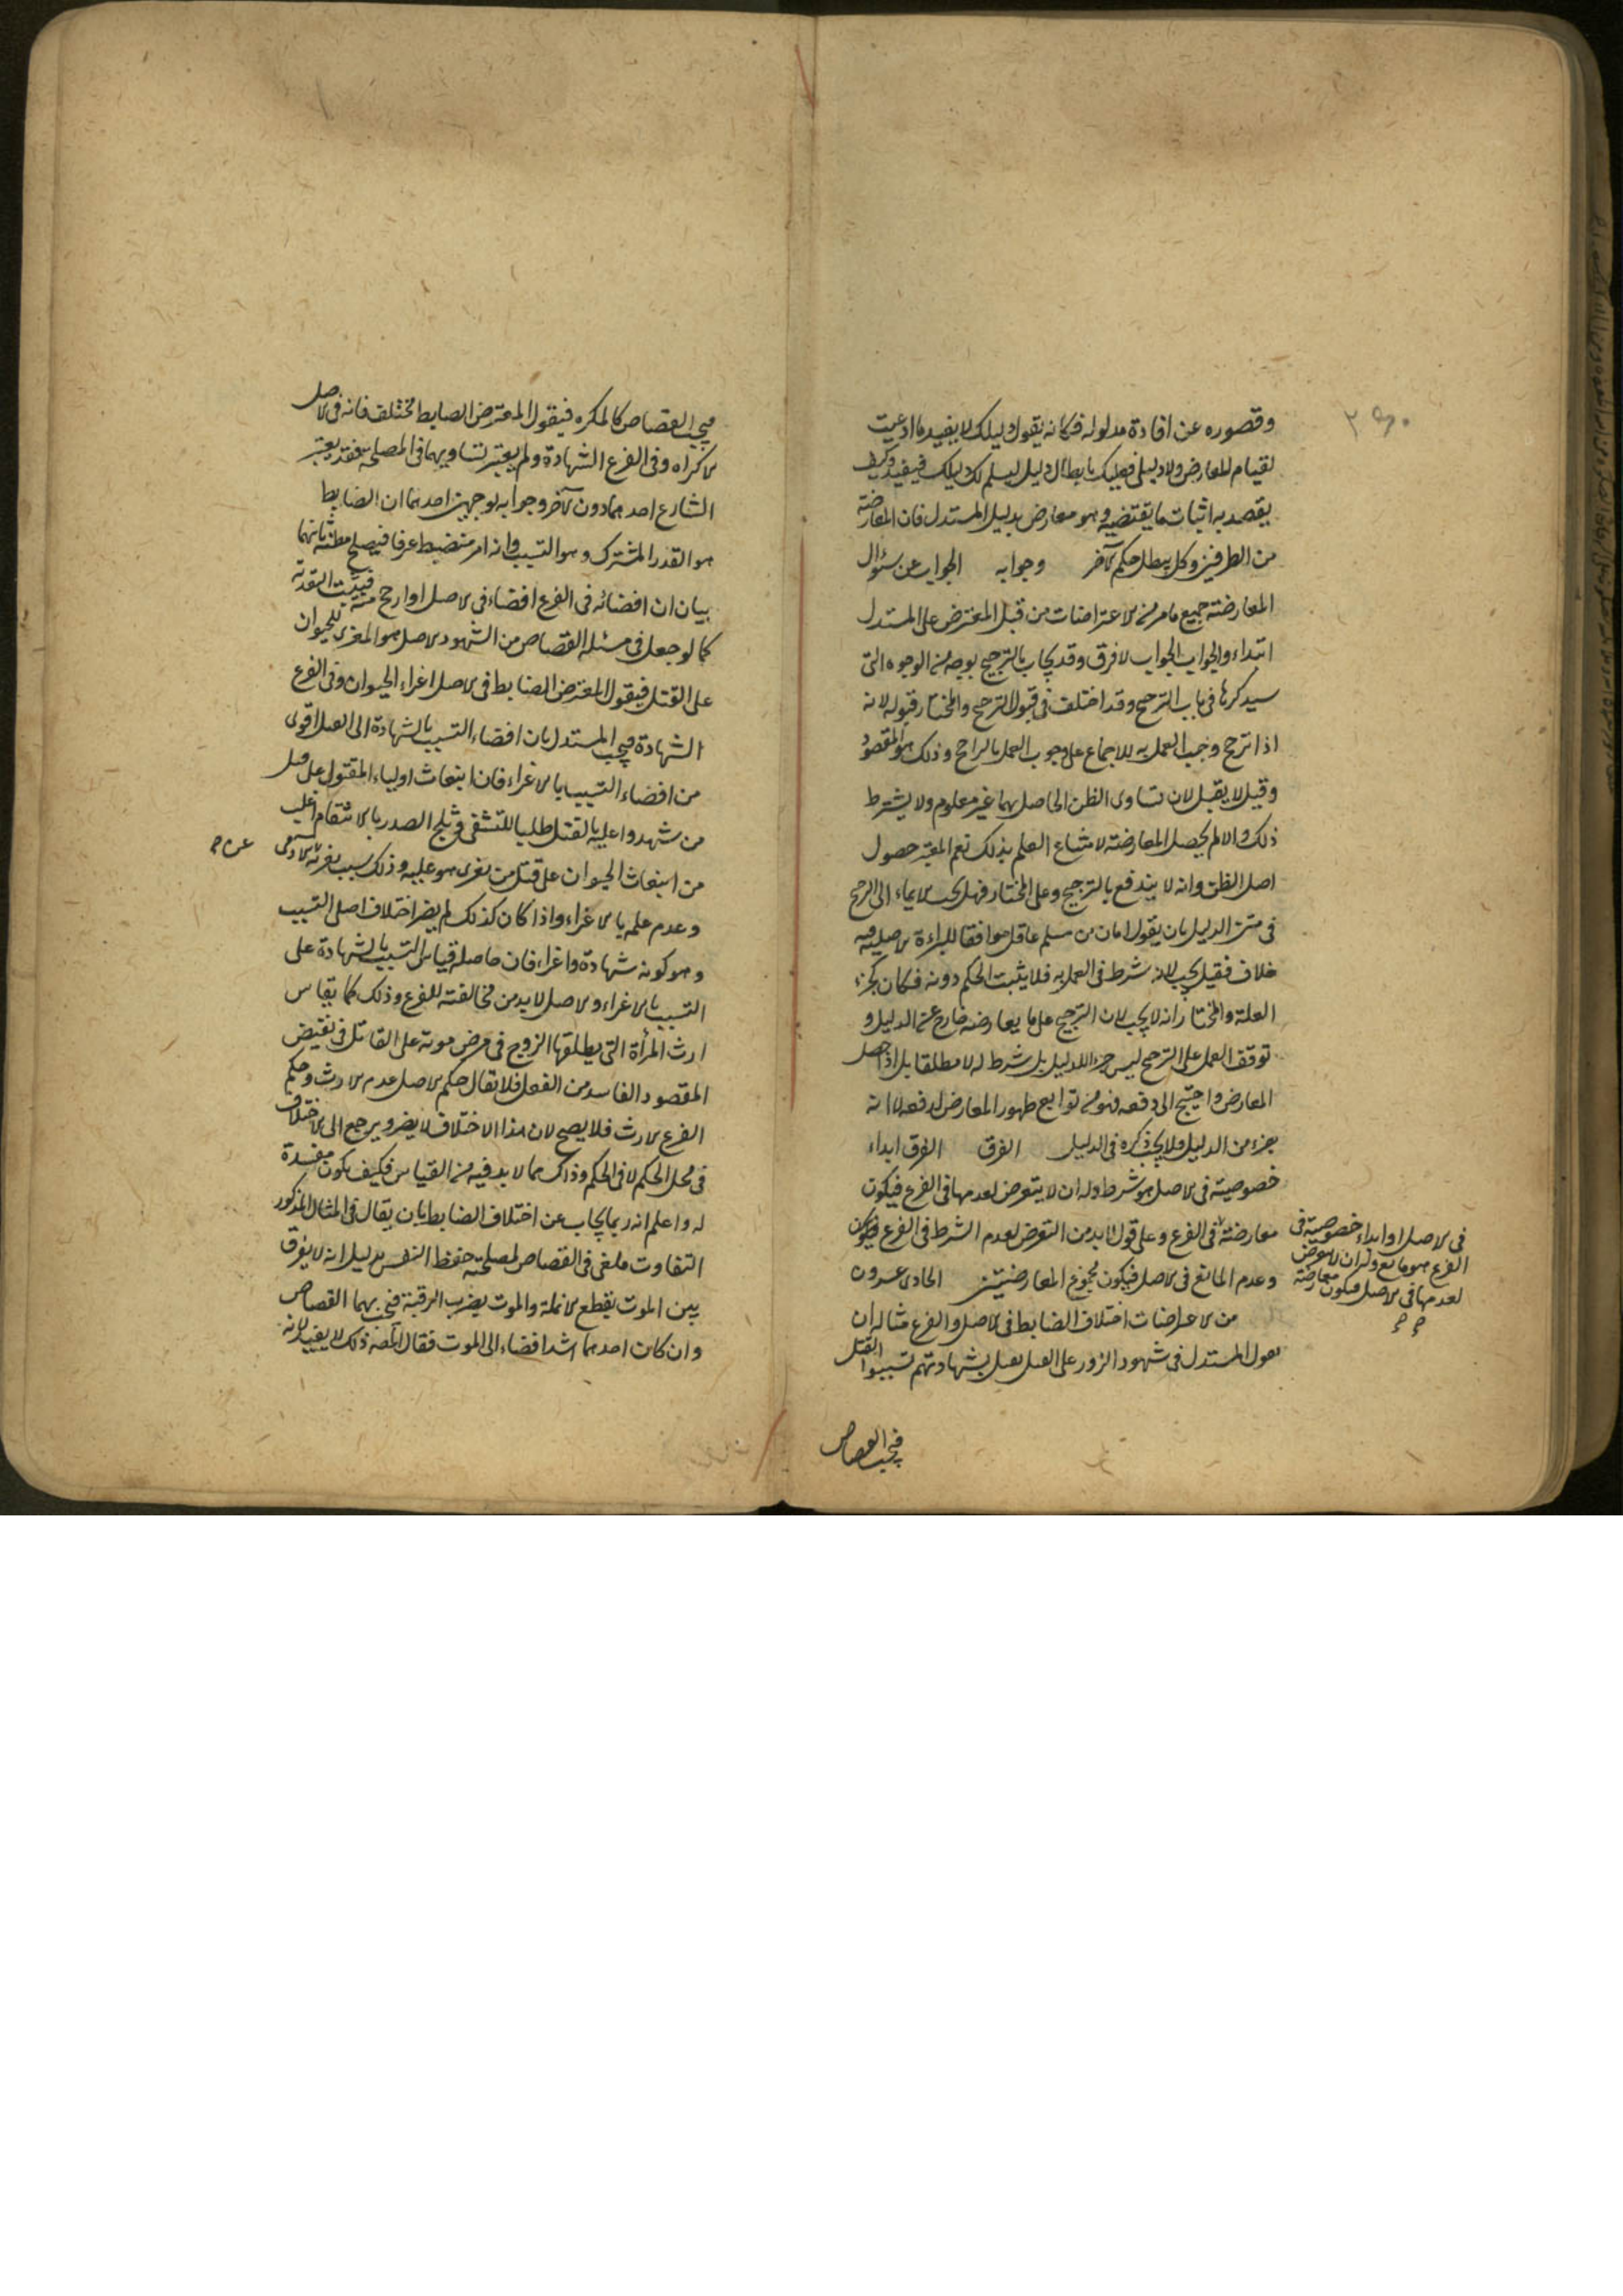 وقصوره عن افادة مدلوله فكانه يقول دليلك لا يفيد ما ادعيت
لقيام المعارض ولا دليلى فعليك بابطال دليل ليسلم لك دليلك فيفيد وكيف
يقصد به اثبات ما يقتضيه وهو معارض بدليل المستدل فان المعارضة
من الطرفين وكل يبطل حكم الآخر وجوابه الجواب عن سؤال
المعارضة جميع ما مر من الاعتراضات من قبل المعترض على المستدل
ابتداء والجواب الجواب لا فرق وقد يجاب بالترجيح بوجه من الوجوه التى
سيذكرها فى باب الترجيح وقد اختلف فى قبول الترجيح والمختار قبوله لانه
اذا ترجح وجب العمل به للاجماع على وجوب العمل بالراجح وذلك هو المقصود
وقيل لا يقبل لان تساوى الظن الحاصل بهما غير معلوم ولا يشترط
ذلك والا لم يحصل المعارضة لامتناع العلم بذلك نعم المعتبر حصول
اصل الظن وانه لا يندفع بالترجيح وعلى المختار فهل يجب الايماء الى الترجيح
فى متن الدليل بان يقول امان من مسلم عاقل موافقا للبراءة الاصلية فيه
خلاف فقيل يجب لانه شرط فى العمل به فلا يثبت الحكم دونه فكان كجزء
العلة والمختار انه لا يجب لان الترجيح على ما يعارضه خارج عن الدليل و
توقف العمل على الترجيح ليس جزء للدليل بل شرط له لا مطلقا بل اذا حصل
المعارض واحتيج الى دفعه فهو من توابع ظهور المعارض لدفعه لا انه
جزء من الدليل فلا يجب ذكره فى الدليل الفرق الفرق ابداء
خصوصية فى الاصل هو شرط وله ان لا يتعرض لعدمها فى الفرع فيكون
معارضة فى الفرع وعلى قول لا بد من التعرض لعدم الشرط فى الفرع فيكون
وعدم المانع فى الاصل فيكون مجموع المعارضتين الحادى عشرون
من الاعتراضات اختلاف الضابط فى الاصل والفرع مثاله ان
يقول المستدل فى شهود الزور على القتل بقتل بشهادتهم تسببوا القتل
فى الاصل او ابداء خصوصية فى
الفرع هو مانع وله ان لا يتعرض
لعدمها فى الاصل فيكون معارضة
فيجب القصاص
فيجب القصاص كالمكره فيقول المعترض الضابط مختلف فانه فى الاصل
الاكراه وفى الفرع الشهادة ولم يعتبر تساويهما فى المصلحة فقد يعتبر
الشارع احدهما دون الآخر وجوابه بوجهين احدهما ان الضابط
هو القدر المشترك وهو التسبب وانه امر منضبط عرفا فيصلح مظنة ثانيهما
بيان ان افضائه فى الفرع افضاء فى الاصل او ارجح منه فيثبت التعدية
كما لو جعل فى مسئلة القصاص من الشهود الاصل هو المغرى للحيوان
على القتل فيقول المعترض الضابط فى الاصل اغراء الحيوان وفى الفرع
الشهادة فيجيب المستدل بان افضاء التسبب بالشهادة الى القتل اقوى
من افضاء التسبب بالاغراء فان انبعاث اولياء المقتول على قتل
من شهدوا عليه بالقتل طلبا للتشفى وثلج الصدر بالانتقام اغلب
من انبعاث الحيوان على قتل من يغرى هو عليه وذلك بسبب نفرته عن الآدمى
وعدم علمه بالاغراء واذا كان كذلك لم يضر اختلاف اصلى التسبب
وهو كونه شهادة واغراء فان حاصله قياس التسبب بالشهادة على
التسبب بالاغراء والاصل لا بد من مخالفته للفرع وذلك كما يقاس
ارث المرأة التى يطلقها الزوج فى مرض موته على القاتل فى نقيض
المقصود الفاسد من الفعل فلا يقال حكم الاصل عدم الارث وحكم
الفرع الارث فلا يصح لان هذا الاختلاف لا يضر ويرجع الى الاختلاف
فى محل الحكم لا فى الحكم وذاك مما لا بد فيه من القياس فكيف يكون مفسدة
له واعلم انه ربما يجاب عن اختلاف الضابط بان يقال فى المثال المذكور
التفاوت ملغى فى القصاص لمصلحة حفظ النفس بدليل انه لا يفرق
بين الموت بقطع الانملة والموت بضرب الرقبة فيجب بهما القصاص
وان كان احدهما اشد افضاء الى الموت فقال المص ذلك لا يفيد لانه